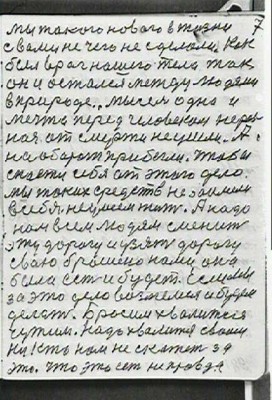 мы такого нового в жизни 7
с вами не чего не сделали. Как
был враг нашего тела так
он и остался между людями
в природе. мысля одна и
мечта перед человеком
ная от смерти не ушли. А
на оборот прибегли. чтобы
спасти себя от этого дело.
мы таких средств не
в себя. не умеем жить. А надо
нам всем людям сменить
эту дорогу и узять дорогу
свою брошено нами она
была есть и будет. Если мы
за это дело возмемся и будем
делать. бросим хвалится
чужим. надо хвалится своим
ни кто нам не скажет за
это. что это есть не правда